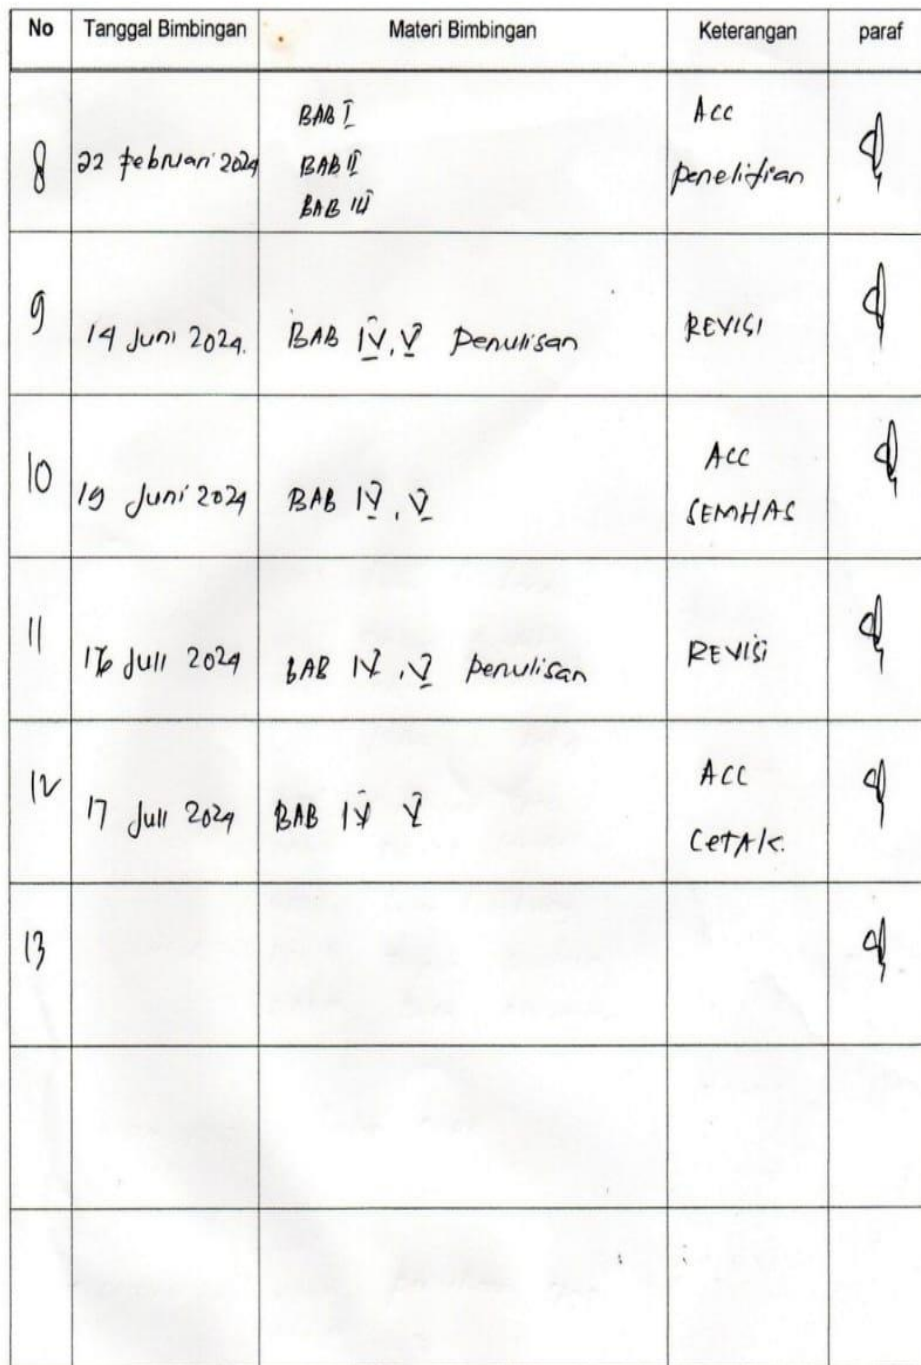 No Tanggal Bimbingan Materi Bimbingan Keterangan paraf
8 22 Februari 2024 BAB I Acc
BAB II penelitian
BAB III
9 14 Juni 2024. BAB IV, V penulisan REVISI
10 19 Juni 2024 BAB IV, V ACC
SEMHAS
11 16 Juli 2024 BAB IV, V penulisan REVISI
12 17 Juli 2024 BAB IV V ACC
CETAK.
13